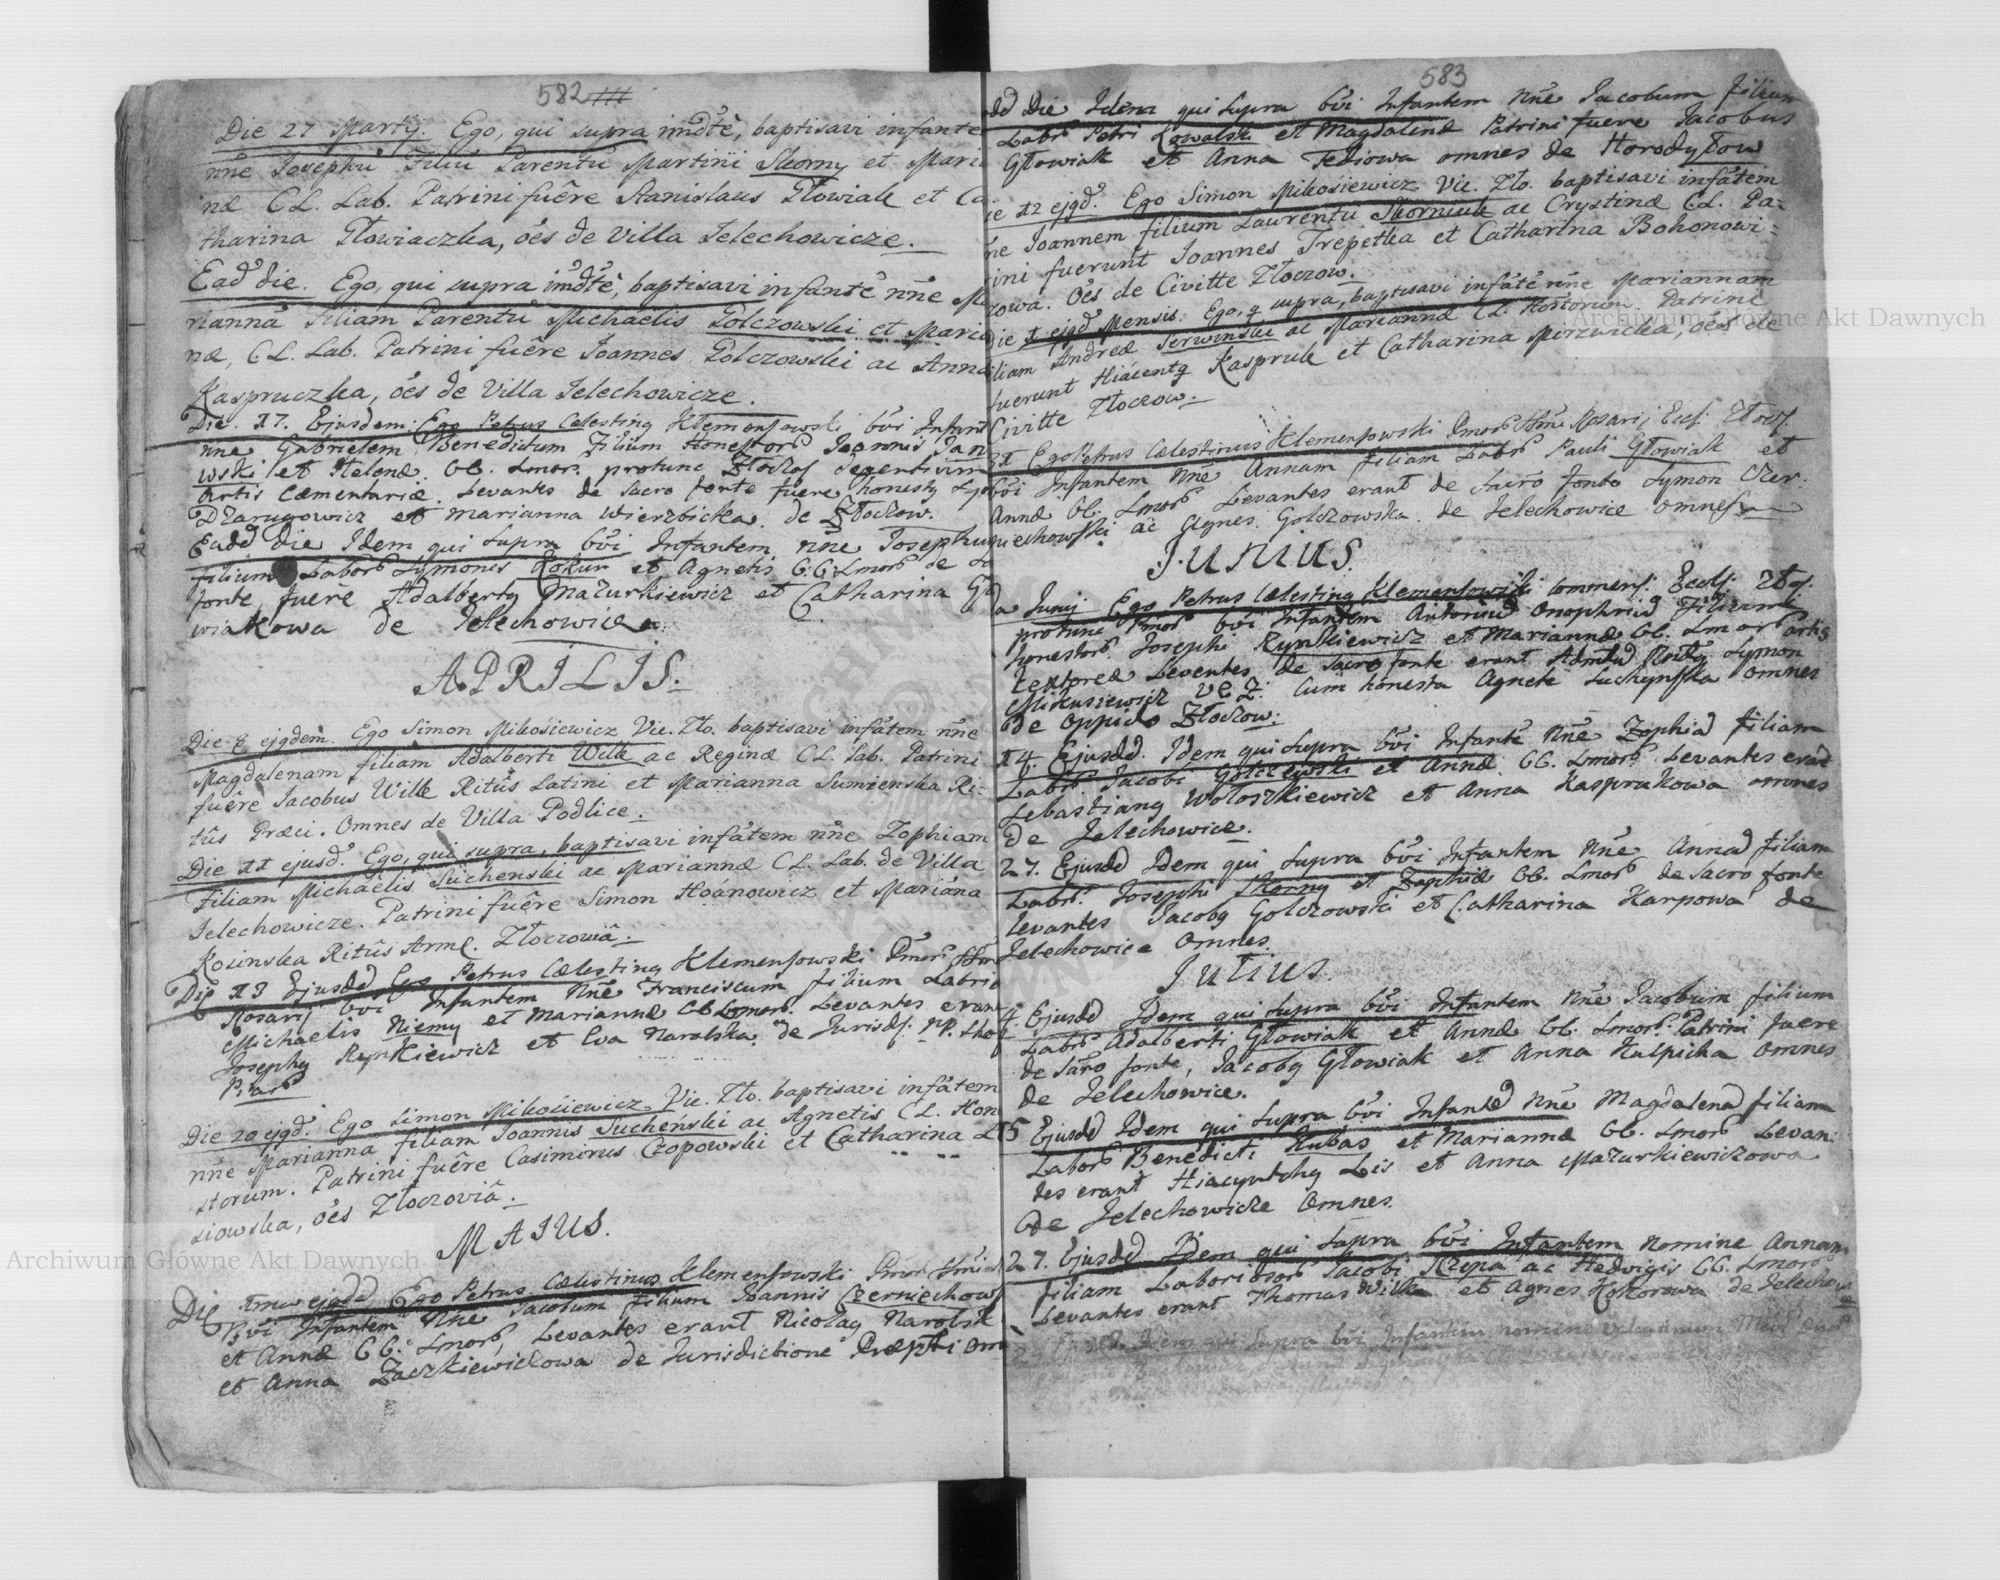 582
Die 27 Martij. Ego, qui supra imdte, baptisavi infante
nne Josephu Filiu Parentu Martini Skorny et Maria
næ CL. Lab. Patrini fuêre Stanislaus Głowiak et Ca
tharina Głowiaczka, oes de Villa Jelechowicze.
Ead die. Ego, qui supra imdte, baptisavi infante nne Ma
rianna Filiam Parentu Michaelis Golczowski et Maria
næ, CL. Lab. Patrini fuêre Joannes Golczowski ac Anna
Kaspruczka, oes de Villa Jelechowicze.
Die. 17. Ejusdem. Ego Petrus Celestinq Klemensowski bvi Infant
nne Gabrielem Benedictum Filium Honestor Joannis Jan
wski et Helenæ CC. Lmor. protunc Złoczoj degentium
artis Cæmentariæ. Levantes de Sacro fonte fuere honesti
Dzarugowicz et Marianna Wierzbicka. de Złoczow.
Eadd die Idem qui supra bvi Infantem nne Josephu
filium Labor Symonis Kokur et Agnetis C.C. Lmor de
fonte fuere Adalbertq Mazurkiewicz et Catharina Gł
wiakowa de Jelechowice.
APRILIS.
Die 8 ejgdem. Ego Simon Mikosiewicz Vic. Zło. baptisavi infatem nne
Magdalenam filiam Adalberti Wilk ac Reginæ CL. Lab. Patrini
fuêre Jacobus Wilk Ritûs Latini et Marianna Sumienska Ri-
tûs Græci. Omnes de Villa Podlice.
Die 11 ejusd. Ego, qui supra, baptisavi infatem nne Zophiam
Filiam Michaelis Suchenski ac Mariannæ CL. Lab. de Villa
Jelechowicze. Patrini fuêre Simon Hoánowicz et Mariana
Kosinska Ritûs Arme. Złoczowiâ.
Die 13 Ejusdd Ego Petrus Cælestinq Klemensowski Pmor
Rosarij bvi Infantem Nne Franciscum filium Labrio
Michaelis Niemy et Mariannæ CC Lmor. Levantes erant
Josephq Rynkiewicz et Eva Narolska de Jurisdi.
Piar
Die 20 ejgd. Ego Simon Mikosiewicz Vic. Zło. baptisavi infatem
nne Marianna filiam Joannis Suchenski ac Agnetis CL. Hon
storum. Patrini fuêre Casimirus Czopowski et Catharina
siowska, oes Złoczoviâ.
MAIUS.
Die 1ma ejgdd Ego Petrus Cælestinus Klemensowski Pmor
Bvi Infantem Nne Jacobum filium Joannis Czerniechows
et Annæ CC. Lmor, Levantes erant Nicolaq Narolsk
et Anna Zaczkiewiczowa de Jurisdictione Præpti om
583
dd Die Idem qui supra bvi Infantem Nne Jacobum filium
Labr Petri Kowalski et Magdalenæ Patrini fuere Jacobus
Głowiak et Anna Fediowa omnes de Horodyłow
ie 12 ejgd. Ego Simon Mikosiewicz Vic. Zło. baptisavi infatem
ne Joannem filium Laurentii Skorniuk ac Crystinæ CL. Pa-
ini fuerunt Joannes Trepetka et Catharina Bohonowi-
zowa. Oes de Civitte Złoczow.
ie ejgd Mensis. Ego, q supra, baptisavi infate nne Mariannam
iliam Andreæ Serwinski ac Mariannæ CL. Hostorum. Patrini
fuerunt Hiacentq Kaspruk et Catharina Mirzwicka, oes de
Civitte Złoczow.
31 Ego Petrus Cælestinus Klemensowski Pmor Rosarij Eccl. Złocz.
bvi Infantem Nne Annam filiam Labr Pauli Głowiak et
Annæ CC. Lmor Levantes erant de sacro fonte Symon Czer.
niechowski ac Agnes Golczowska de Jelechowice omnes
JUNIUS.
da Junij Ego Petrus Cælestinq Klemensowski commens. Eccl. Złoz.
protunc Pmor bvi Infantem Antoniu Onophriu Filium
honestor Josephi Rynkiewicz et Mariannæ CC. Lmor artis
textoreæ Levantes de sacro fonte erant Symon
Mikusiewicz VCZ. Cum honesta Agnete Suchynska omnes
de oppido Złoczow.
14. Ejusdd. Idem qui supra bvi Infante Nne Zophia filiam
Labr. Jacobi Golczewski et Annæ CC. Lmor. Levantes erat
Sebastianq Wołoszkiewicz et Anna Kasprukowa omnes
de Jelechowice.
27. Ejusdd Idem qui supra bvi Infantem Nne Anna filiam
Labr. Josephi Skorny et Zophiæ CC. Lmor de sacro fonte
levantes Jacobq Golczowski et Catharina Karpowa de
Jelechowice Omnes.
Julius.
4. Ejusdd Idem qui supra bvi Infantem Nne Jacobum filium
Labr Adalberti Głowiak et Annæ CC. Lmor. Patrini fuere
de Saro fonte, Jacobq Głowiak et Anna Kulpicka Omnes
de Jelechowice.
15 Ejusdd Idem qui supra bvi Infante Nne Magdalena filiam
Labor Benedicti Kubas et Mariannæ CC. Lmor Levan:
tes erant Hiacynthq Lis et Anna Mazurkiewiczowa
de Jelechowicze Omnes.
27. Ejusdd Idem qui supra bvi Infantem Nomine Annam
filiam Laboriosor Jacobi Rzepa ac Hedwigis CC. Lmor
Levantes erant Thomas Wilka et Agnes Kokorowa de Jelechow
Idem qui supra bvi Infantem nomine
Archiwum Główne Akt Dawnych
Archiwum Główne Akt Dawnych